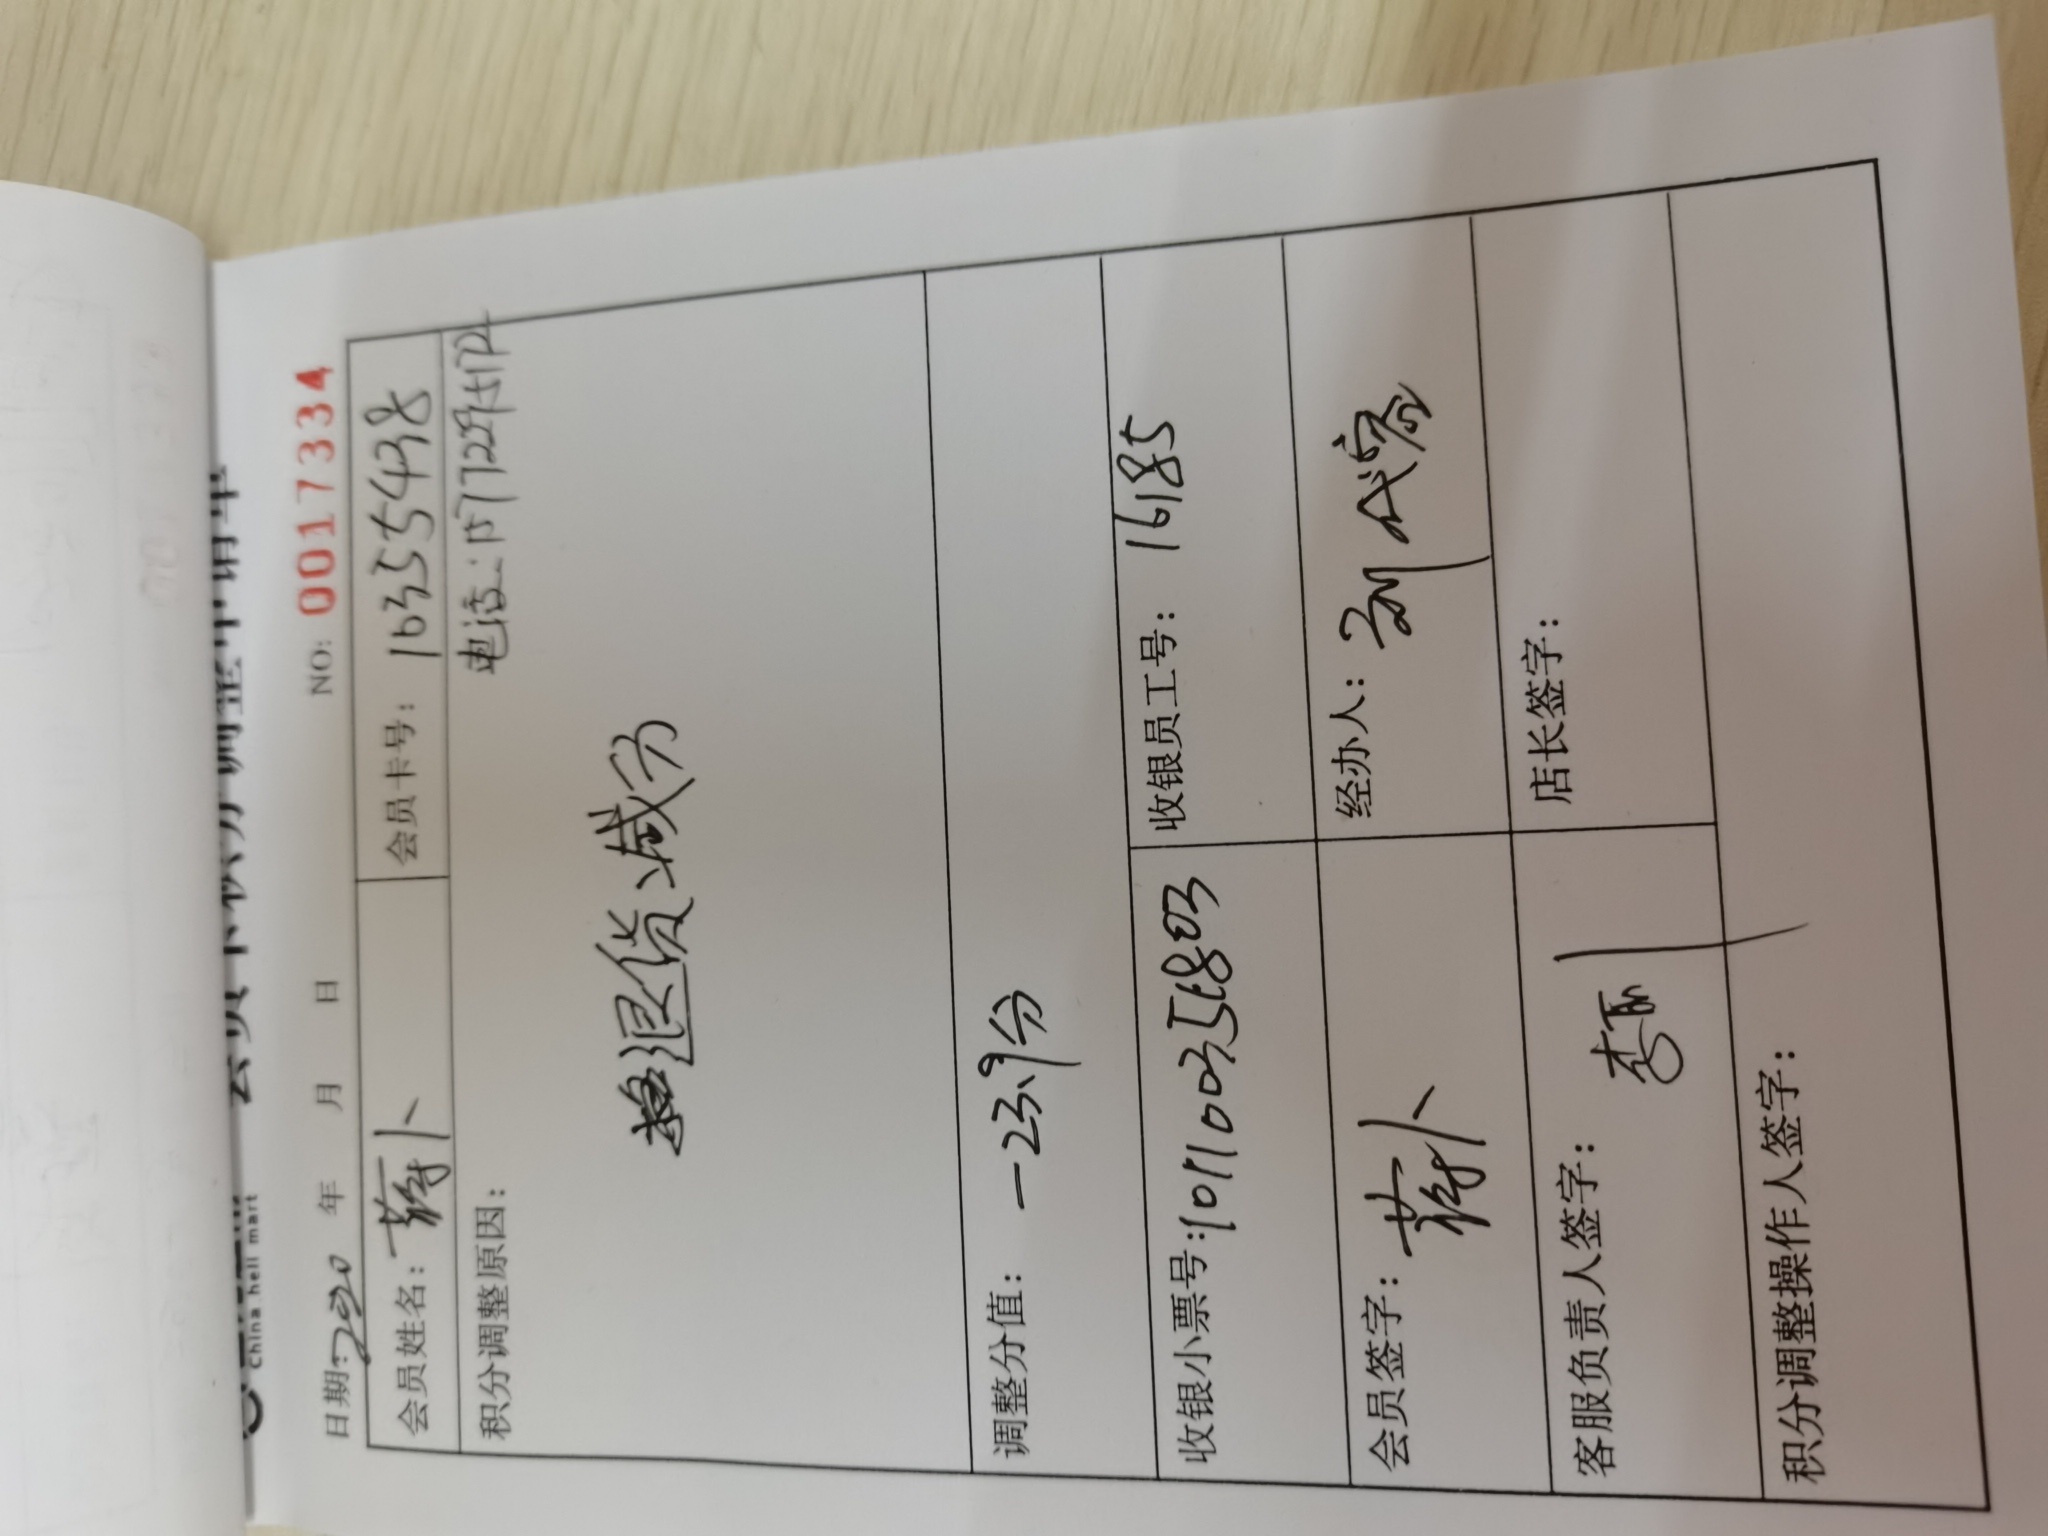 China hell mart
会员卡积分调整申请单
日期:2020 年 月 日 NO: 0017334
会员姓名: 蒋卜 会员卡号: 16355498
积分调整原因: 电话:
退货减分
调整分值: -23.9分
收银小票号: 收银员工号: 16185
会员签字: 蒋卜 经办人: 刘代蓉
客服负责人签字: 李丽 店长签字:
积分调整操作人签字: